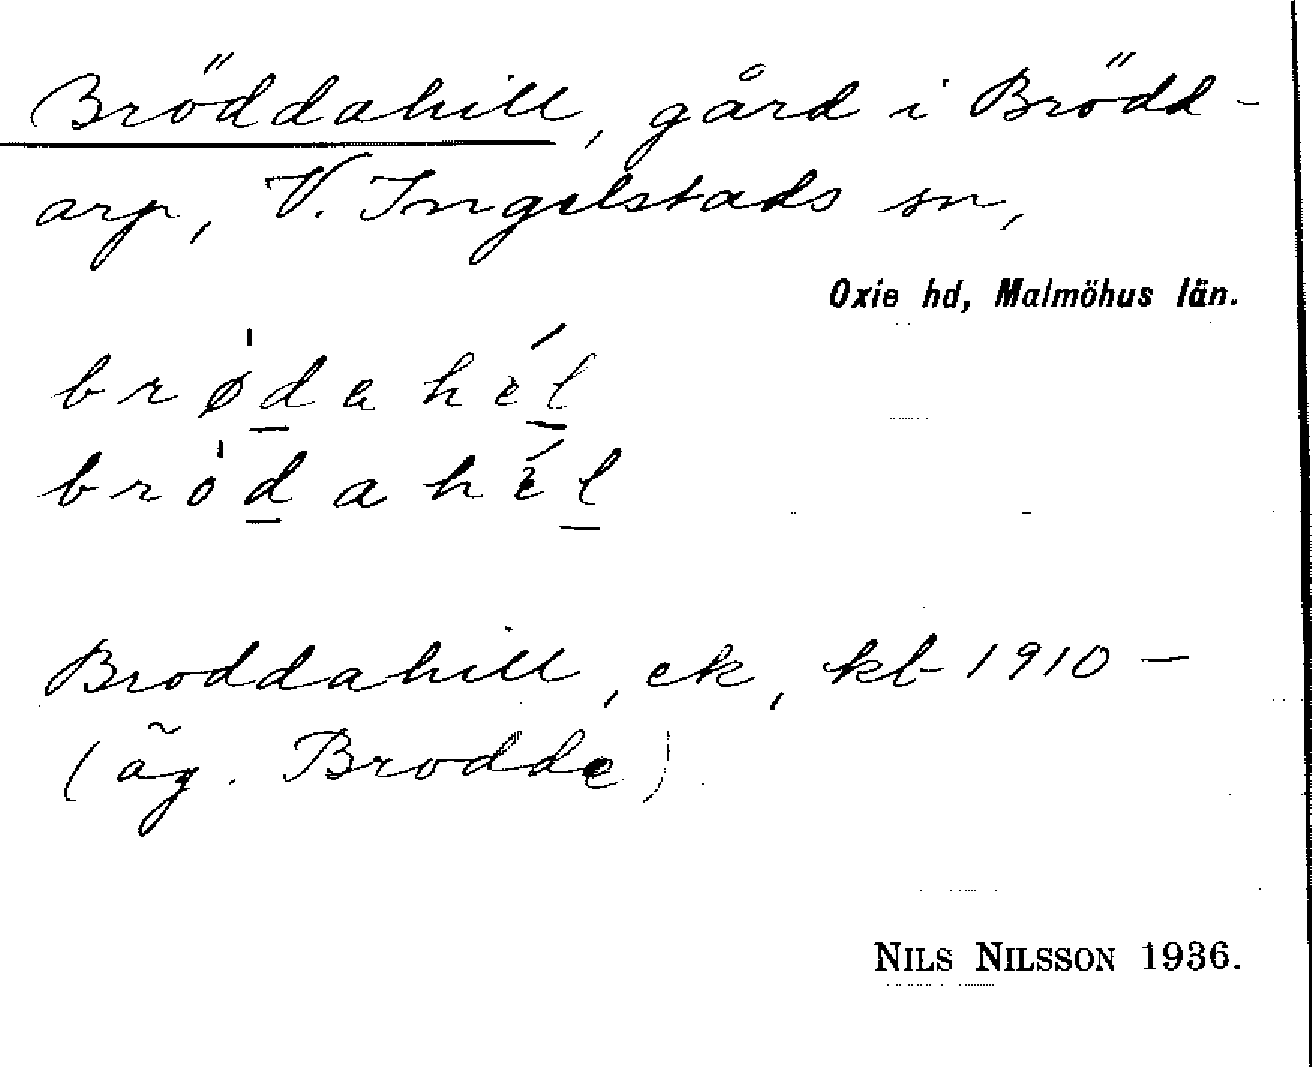 Bröddahill, gård i Brödd-
arp, V. Ingelstads sn,
Oxie hd, Malmöhus län.
brø̍d̲a hél̲
bro̍d̲a hél̲
Broddahill, ek, kb 1910 —
(äg. Brodde)
NILS NILSSON 1936.